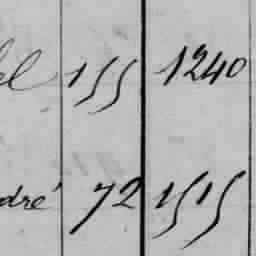 el 155 1240
dré 72 1515